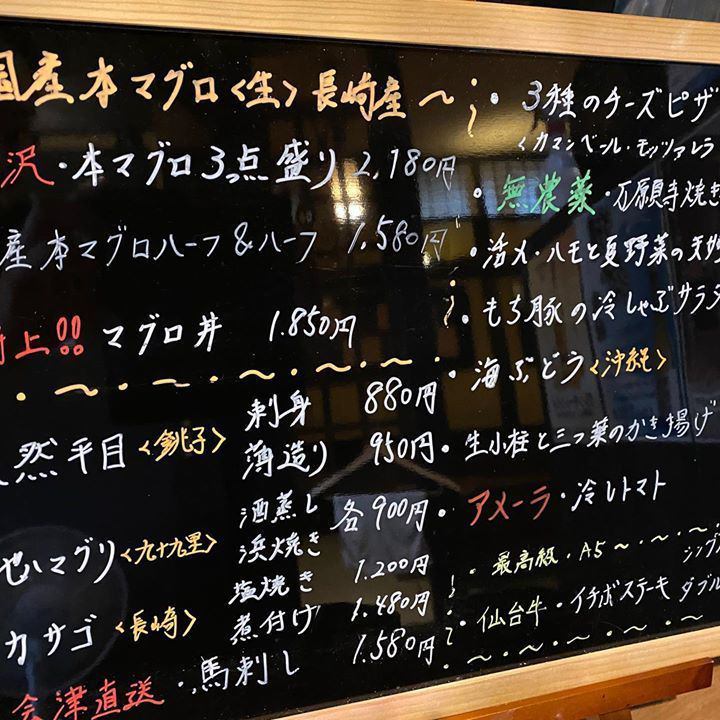 国産本マグロ〈生〉長崎産〜
沢・本マグロ3点盛り 2,180円
産本マグロハーフ&ハーフ 1.580円
特上!! マグロ丼 1.850円
然平目〈銚子〉 刺身 880円
薄造り 950円
地ハマグリ〈九十九里〉 酒蒸し 浜焼き 各900円
カサゴ〈長崎〉 塩焼き 1.200円
煮付け 1.480円
会津直送・馬刺し 1.580円
・3種のチーズピザ
〈カマンベール・モッツァレラ
・無農薬・石願寺焼き
・活〆・ハモと夏野菜の天
・もち豚の冷しゃぶサラダ
・海ぶどう〈沖縄〉
・生小柱と三つ葉のかき揚げ
・アメーラ・冷しトマト
・最高級・A5〜・〜・〜・〜
・仙台牛・イチボステーキ シング
ダブル